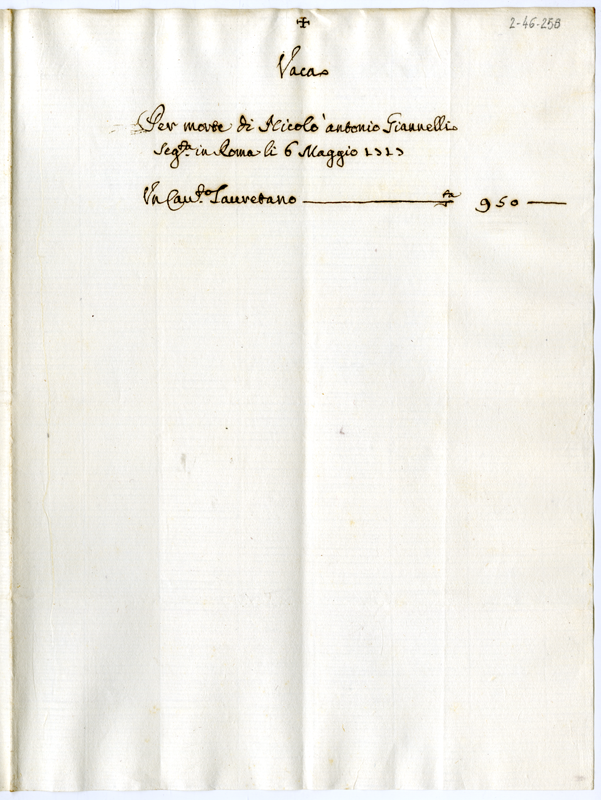 ✠
2-46-258
Vaca
Per morte di Nicolò antonio Giannelli
Seg.ta in Roma li 6 Maggio 1717
Un Cau.to Lauretano — 950 —